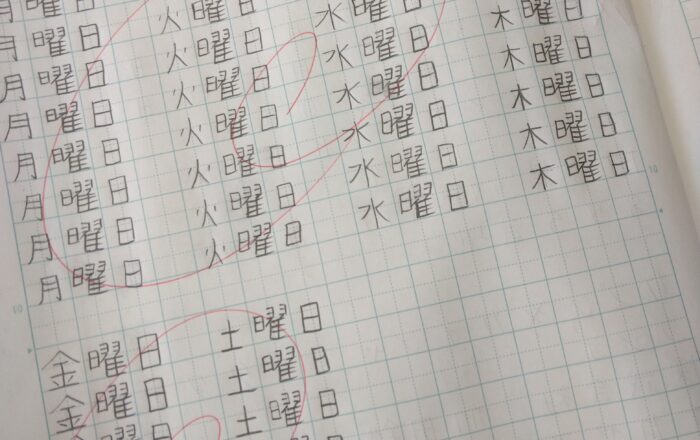 月曜日 火曜日
月曜日 火曜日 水曜日
月曜日 火曜日 水曜日 木曜日
月曜日 火曜日 水曜日 木曜日
月曜日 火曜日 水曜日 木曜日
月曜日 火曜日 水曜日 木曜日
月曜日 火曜日 水曜日 木曜日
10 10
金曜日 土曜日
金曜日 土曜日
曜日 土曜日